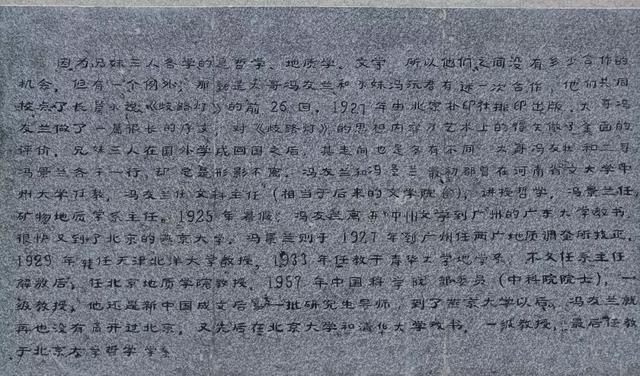 因为冯妹三人各学的是哲学、地质学、文学 所以他们之间没有多少合作的
机会，但有一个例外；那就是大哥冯友兰和小妹冯沅君有过一次合作，他们共同
校点了长篇小说《歧路灯》的前26回，1927年由北京朴社排印出版，大哥冯
友兰做了一篇很长的序文；对《歧路灯》的思想内容及艺术上的得失做了全面的
评价，兄妹三人在国外学成回国之后，其走向也是多有不同 大哥冯友兰和二哥
冯景兰各干一行，却 形影不离，冯友兰和冯景兰 最初都曾在河南省 大学中
州大学任教，冯友兰任文科主任（相当于后来的文学院 ），讲授哲学，冯景兰任
矿物地质学系主任。1925年暑假；冯友兰离开中州大学到广州的广东大学教书，
很快又到了北京的燕京大学，冯景兰则于1927年到广州任两广地质调查所技正，
1929年转任天津北洋大学教授，1933年任教于清华大学地学系， 又任系主任
解放后，任北京地质学院教授，1957年中国科学院 部委员（中科院院士），一
级教授，他还是新中国成立后第一批研究生导师，到了燕京大学以后，冯友兰就
再也没有离开过北京，又先后在北京大学和清华大学教书，一级教授，最后任教
于北京大学哲学系